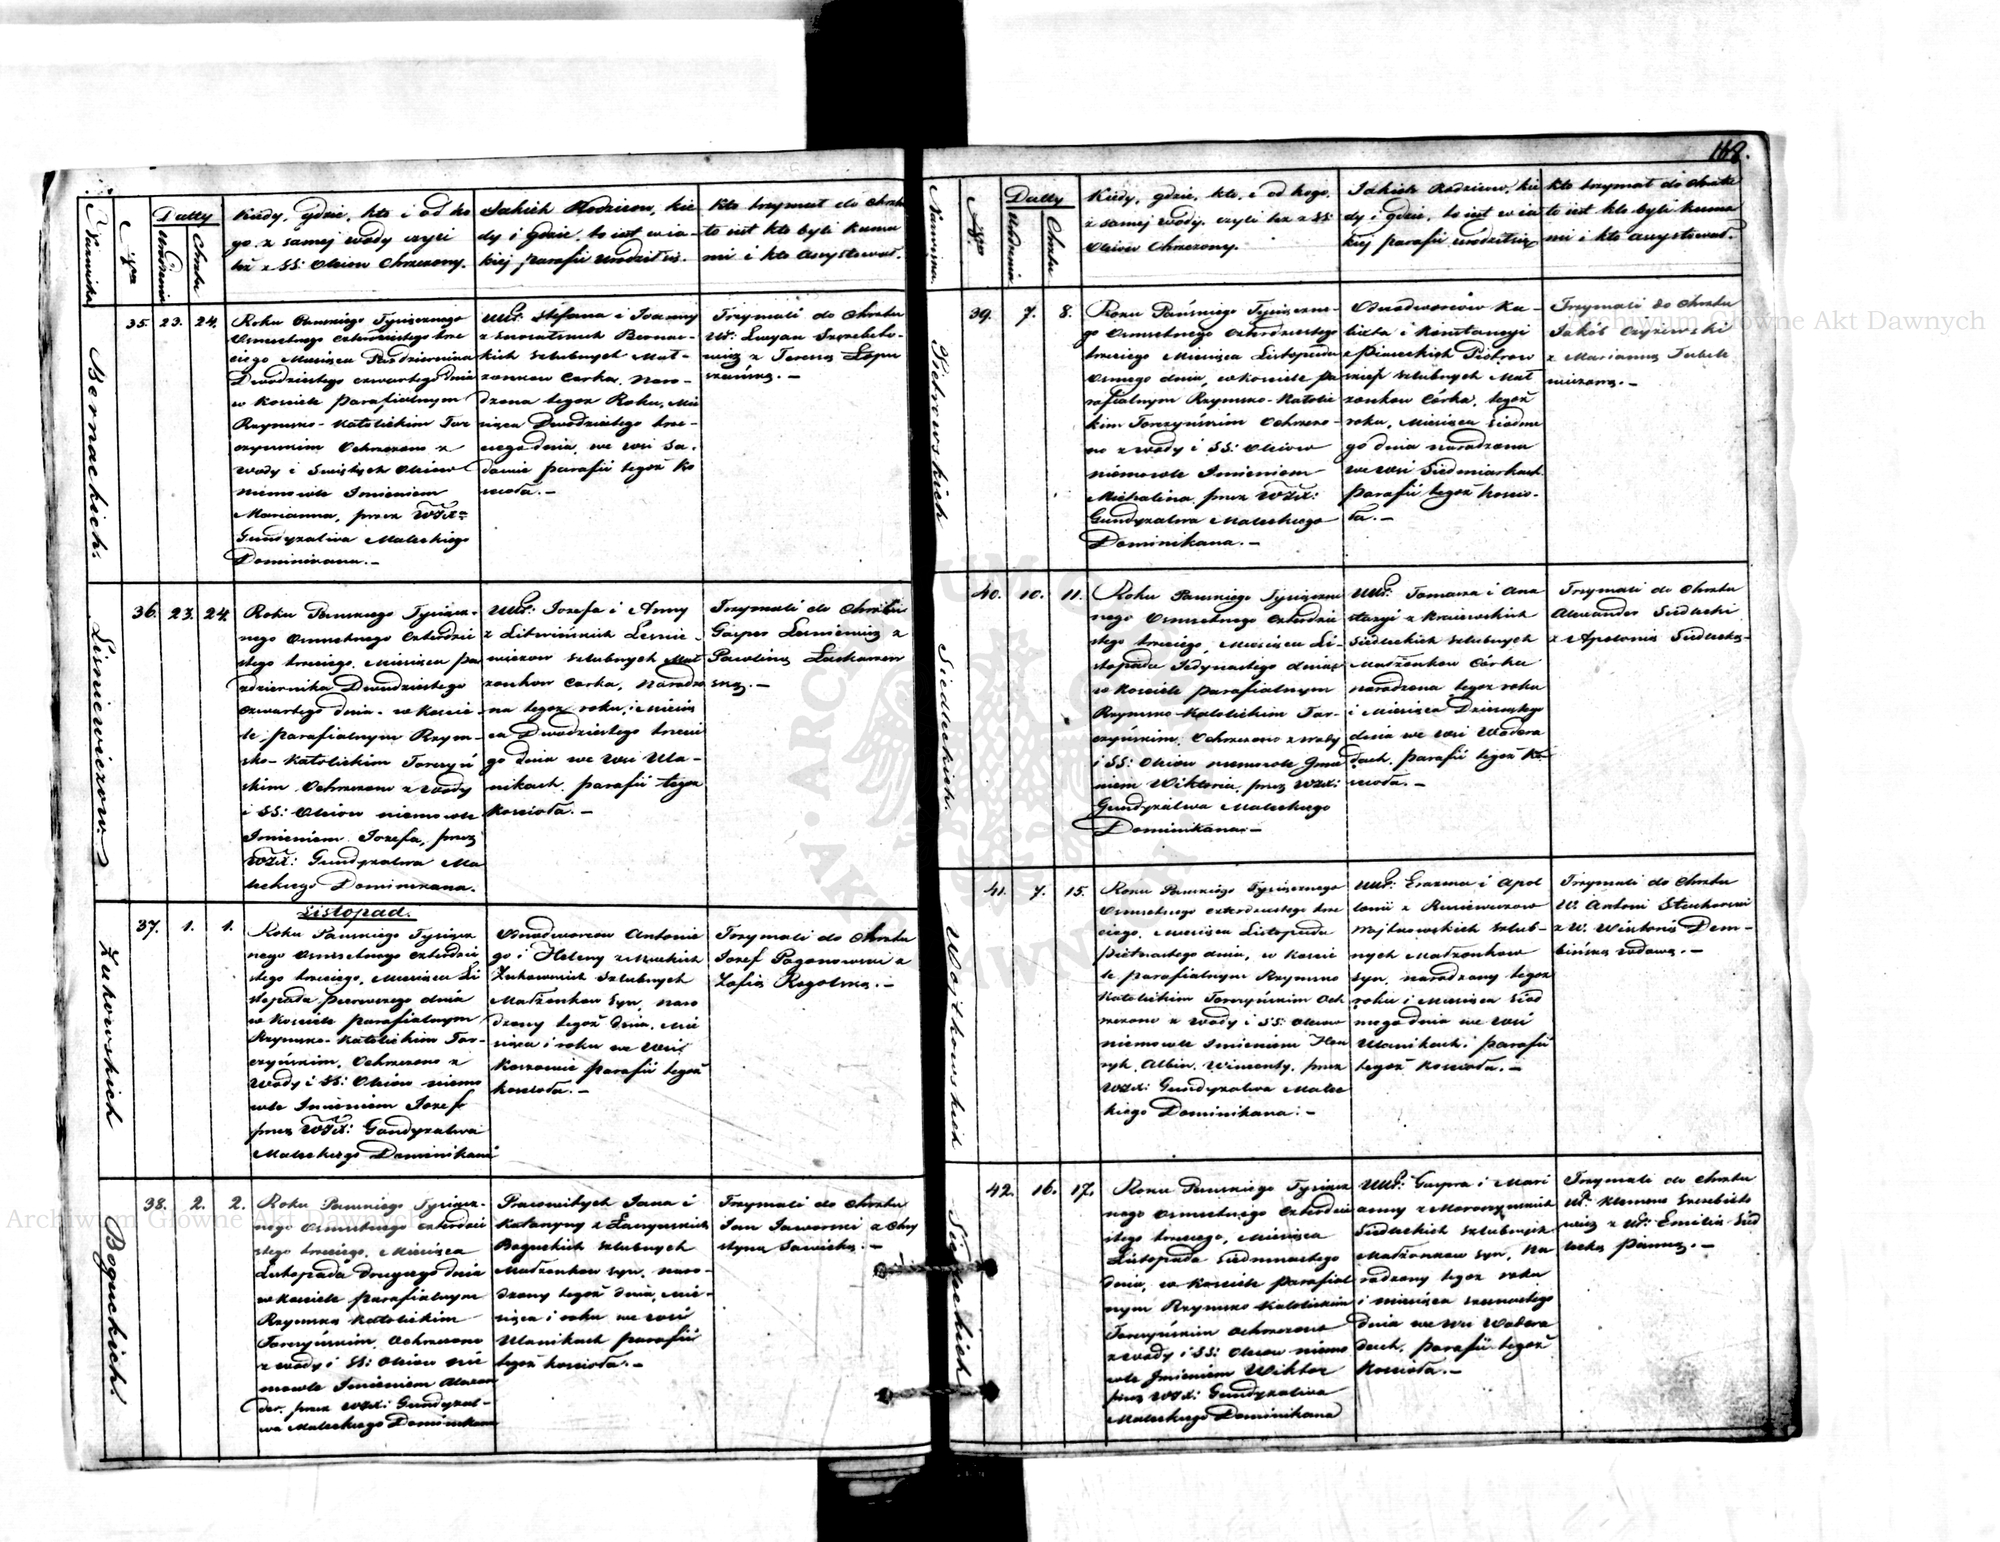 168.
Nazwiska
Nro
Datty
Urodzenia
Chrztu
Kiedy, gdzie, kto i od ko
go z samej wody czyli
też z SS: Olejow Chrzczony.
Jakich Rodzicow, kie
dy i gdzie, to iest w ia-
kiej parafii urodził się.
Kto trzymał do Chrztu
to iest kto byli kuma
mi i kto assystował.
Bernackich.
35. 23. 24.
Roku Pańskiego Tysiącznego
Osmsetnego Czterdziestego trze
ciego Miesiąca Października
Dwudziestego czwartego dnia
w kościele parafialnym
Rzymsko-Katolickim Tor
czyńskim Ochrzczono z
wody i Swiętych Olejow
niemowle Imieniem
Marianna, przez WJX:
Gundyzalwa Maleckiego
Dominikana.-
Stefana i Joanny
Bernac-
kich szlubnych Mał-
żonkow Corka, Naro-
dzona tegoż Roku, Mie
siąca Dwudziestego trze-
ciego dnia, we wsi Sa-
dowie parafii tegoż Ko
scioła.-
Trzymali do Chrztu
36. 23. 24.
Lisniewiczow.
Roku Pańskiego Tysiącz-
nego Osmsetnego Czterdzie
stego trzeciego, Miesiąca Pa
zdziernika Dwudziestego
czwartego dnia w koscie-
le parafialnym Rzym-
sko-Katolickim Torczyń
skim, Ochrzczono z Wody
i SS: Olejow niemowle
Imieniem Jozefa, przez
WJX: Gundyzalwa Ma
leckiego Dominikana.
Jozefa i Anny
z Litwińskich Lesnie-
wiczow szlubnych Mał
żonkow Corka, Narodzo
na tegoż roku, i Miesią
ca Dwudziestego trzecie
go dnia we wsi Ula-
nikach, parafii tegoż
Koscioła.-
Trzymali do Chrztu
Gasper Lesniewicz z
Pawliną
Listopad.
Żukowskich
37. 1. 1.
Roku Pańskiego Tysiącz
nego Osmsetnego Czterdzie
stego trzeciego, Miesiąca Li
stopada pierwszego dnia
w kościele parafialnym
Rzymsko-Katolickim Tor-
czyńskim, Ochrzczono z
Wody i SS: Olejow niemo
wle Imieniem Jozef
przez WJX: Gundyzalwa
Maleckiego Dominikana
Antonie
go i Heleny
Żukowskich szlubnych
Małżonkow syn, naro
dzony tegoż dnia, Mie
siąca i roku we wsi
parafii tegoż
kościoła.-
Trzymali do Chrztu
Jozef
Zofią
Boguckich.
38. 2. 2.
Roku Pańskiego Tysiącz-
nego Osmsetnego Czterdzie
stego trzeciego, Miesiąca
Listopada drugiego dnia
w kościele parafialnym
Rzymsko Katolickim
Torczyńskim, Ochrzczono
z wody i SS: Olejow nie
mowle Imieniem Alexan
der, przez WJX: Gundyzal-
wa Maleckiego Dominikana
Pracowitych Jana i
Katarzyny z
Boguckich szlubnych
Małżonkow syn, naro-
dzony tegoż dnia, Mie-
siąca i roku we wsi
Ulanikach parafii
tegoż kościoła.-
Trzymali do Chrztu
Jan Jaworski z Chry
styną Sawicką.-
Nazwiska
Nro
Datty
Urodzenia
Chrztu
Kiedy, gdzie, kto, i od kogo,
z samej wody, czyli też z SS
Olejow Chrzczony.
Jakich Rodzicow, kie
dy i gdzie, to iest w ia
kiej parafii urodził się
Kto trzymał do Chrztu
to iest kto byli kuma
mi i kto assystował.
Piotrowskich
39. 7. 8.
Roku Pańskiego Tysiączne-
go Osmsetnego Czterdziestego
trzeciego Miesiąca Listopada
osmego dnia, w kościele pa
rafialnym Rzymsko-Katolic
kim Torczyńskim Ochrzczo-
no z wody i SS: Olejow
niemowle Imieniem
Michalina przez WJX:
Gundyzalwa Maleckiego
Dominikana.-
Ka-
lixta i Konstancyi
z Piaseckich Piotrow
skich szlubnych Mał
żonkow Córka, tegoż
roku, Miesiąca siodme
go dnia narodzona
we wsi Siedmiarkach
parafii tegoż koscio-
ła.-
Trzymali do Chrztu
Jakób Czyżewski
z Marianną
Siedleckich.
40. 10. 11.
Roku Pańskiego Tysiącz
nego Osmsetnego Czterdzie
stego trzeciego, Miesiąca Li-
stopada Jedynastego dnia
w Kościele parafialnym
Rzymsko-Katolickim Tor-
czyńskim, Ochrzczono z wody
i SS: Olejow niemowle Imie
niem Wiktoria, przez WJX:
Gundyzalwa Maleckiego
Dominikana.-
Tomasza i Ana
stazyi z Krajewskich
Siedleckich szlubnych
Małżonkow Córka
narodzona tegoż roku
i Miesiąca Dziesiątego
dnia we wsi Wodora
dach, parafii tegoż Ko-
scioła.-
Trzymali do Chrztu
Alexander Siedlecki
z Apolonią Siedlecką-
Wojtkowskich
41. 7. 15.
Roku Pańskiego Tysiącznego
Osmsetnego czterdziestego trze
ciego, Miesiąca Listopada
Piętnastego dnia, w Koscie
le parafialnym Rzymsko
Katolickim Torczyńskim Och
rzczono z wody i SS: Olejow
niemowle Imieniem Hen
ryk, Albin, Wincenty, przez
WJX: Gundyzalwa Malec
kiego Dominikana:-
Erazma i Apol
lonii z
Wojtkowskich szlub-
nych Małżonkow
syn, narodzony tegoż
roku i Miesiąca siod
mego dnia we wsi
Ulanikach, parafii
tegoż Kościoła.-
Trzymali do Chrztu
W. Antoni
z W. Wiktorią Dem-
bińską wdową.-
Siedleckich
42. 16. 17.
Roku Pańskiego Tysiącz
nego Osmsetnego Czterdzie
stego trzeciego, Miesiąca
Listopada siedmnastego
dnia, w kościele parafial
nym Rzymsko Katolickim
Torczyńskim Ochrzczono
z wody i SS: Olejow niemo
wle Imieniem Wiktor
przez WJX: Gundyzalwa
Maleckiego Dominikana
Gaspra i Mari
anny z
Siedleckich szlubnych
Małżonkow syn, Na
rodzony tegoż roku
i miesiąca szesnastego
dnia we wsi Wodora
dach, parafii tegoż
Kościoła.-
Trzymali do Chrztu
Klemens
z Emilią Sied
lecką Panną.-
Archiwum Główne Akt Dawnych
Archiwum Główne Akt Dawnych
ARCHIWUM GŁÓWNE AKT DAWNYCH